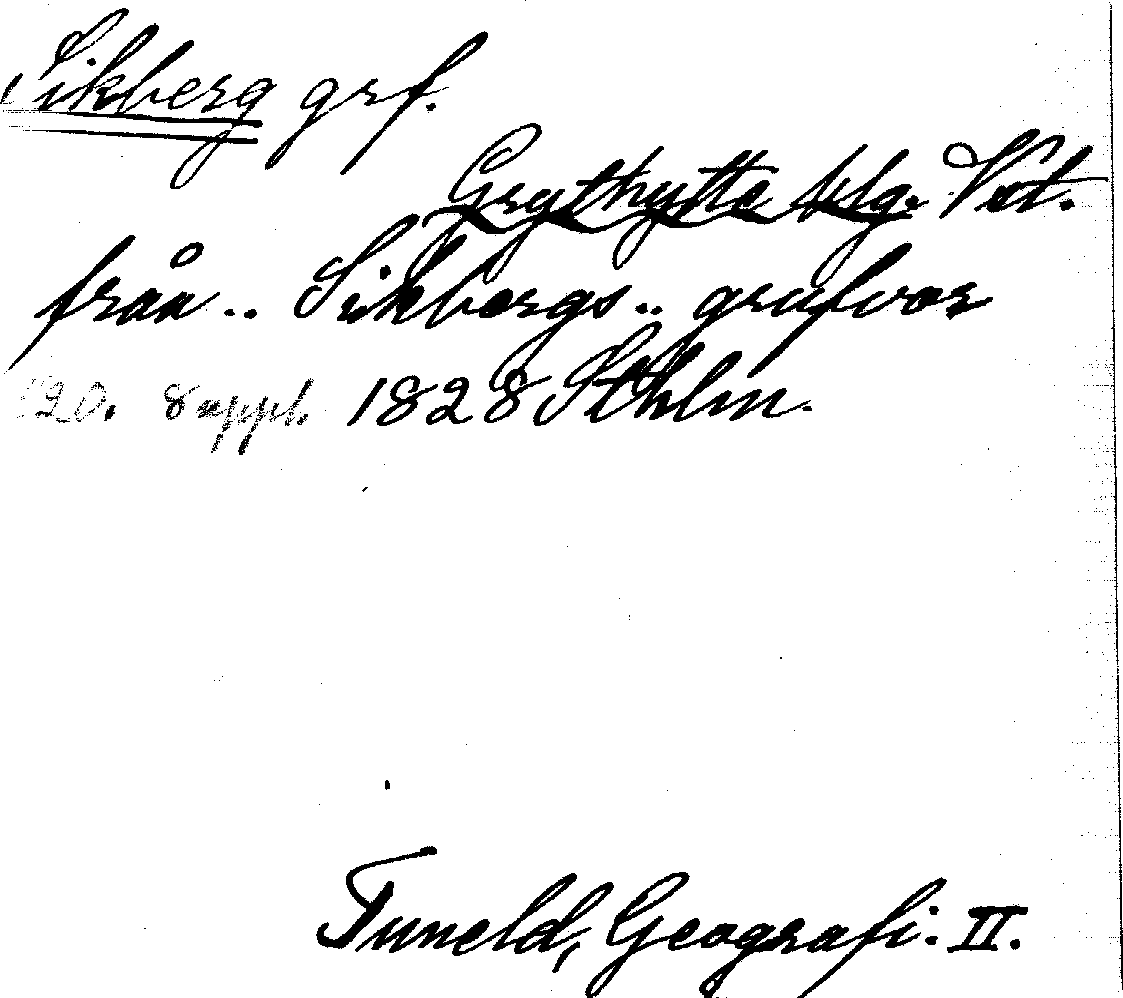 Sikberg grf.
Grythytte blg. Vstl.
från .. Sikbergs .. grufvor
20. 8 uppl. 1828 Sthlm.
Tuneld, Geografi. II.